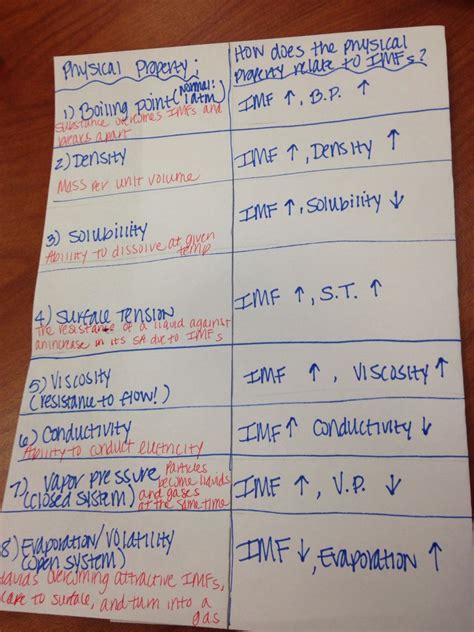 Physical Property:
How does the physical
property relate to IMFs?
1) Boiling point (normal: 1 atm)
Substance overcomes IMFs and
breaks apart
IMF ↑, B.P. ↑
2) Density
Mass per unit volume
IMF ↑, Density ↑
3) Solubility
Ability to dissolve at given
temp
IMF ↑, Solubility ↓
4) Surface Tension
The resistance of a liquid against
an increase in its SA due to IMFs
IMF ↑, S.T. ↑
5) Viscosity
(resistance to flow!)
IMF ↑, Viscosity ↑
6) Conductivity
Ability to conduct electricity
IMF ↑ Conductivity ↓
7) Vapor Pressure
(closed system)
Particles
become liquids
and gases
at the same time
IMF ↑, V.P. ↓
8) Evaporation/Volatility
(open system)
liquids overcoming attractive IMFs,
to surface, and turn into a
gas
IMF ↓, Evaporation ↑